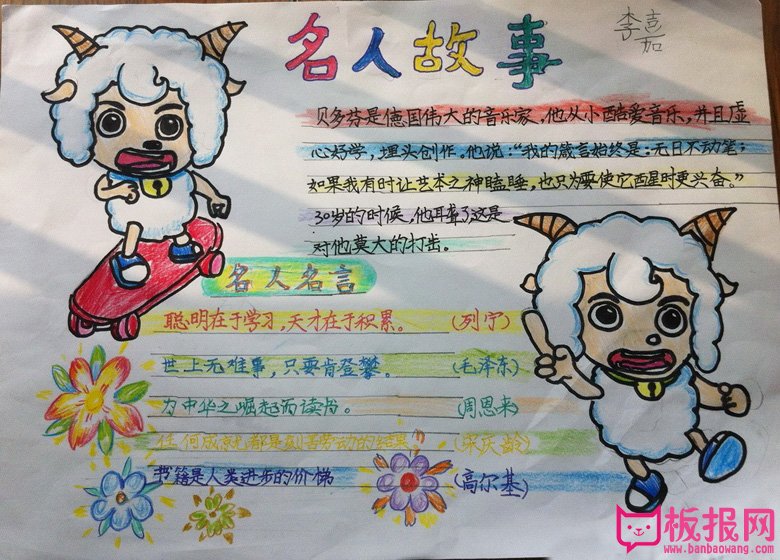 名人故事
李嘉
贝多芬是德国伟大的音乐家,他从小酷爱音乐,并且虚
心好学,埋头创作。他说:“我的箴言始终是:无日不动笔;
如果我有时让艺术之神瞌睡,也只为要使它醒时更兴奋。”
30岁的时候,他耳聋了这是
对他莫大的打击。
名人名言
聪明在于学习,天才在于积累。 (列宁)
世上无难事,只要肯登攀。 (毛泽东)
为中华之崛起而读书。 (周恩来)
任何成就都是刻苦劳动的结果。 (宋庆龄)
书籍是人类进步的价梯 (高尔基)
板报网
www.banbaowang.com